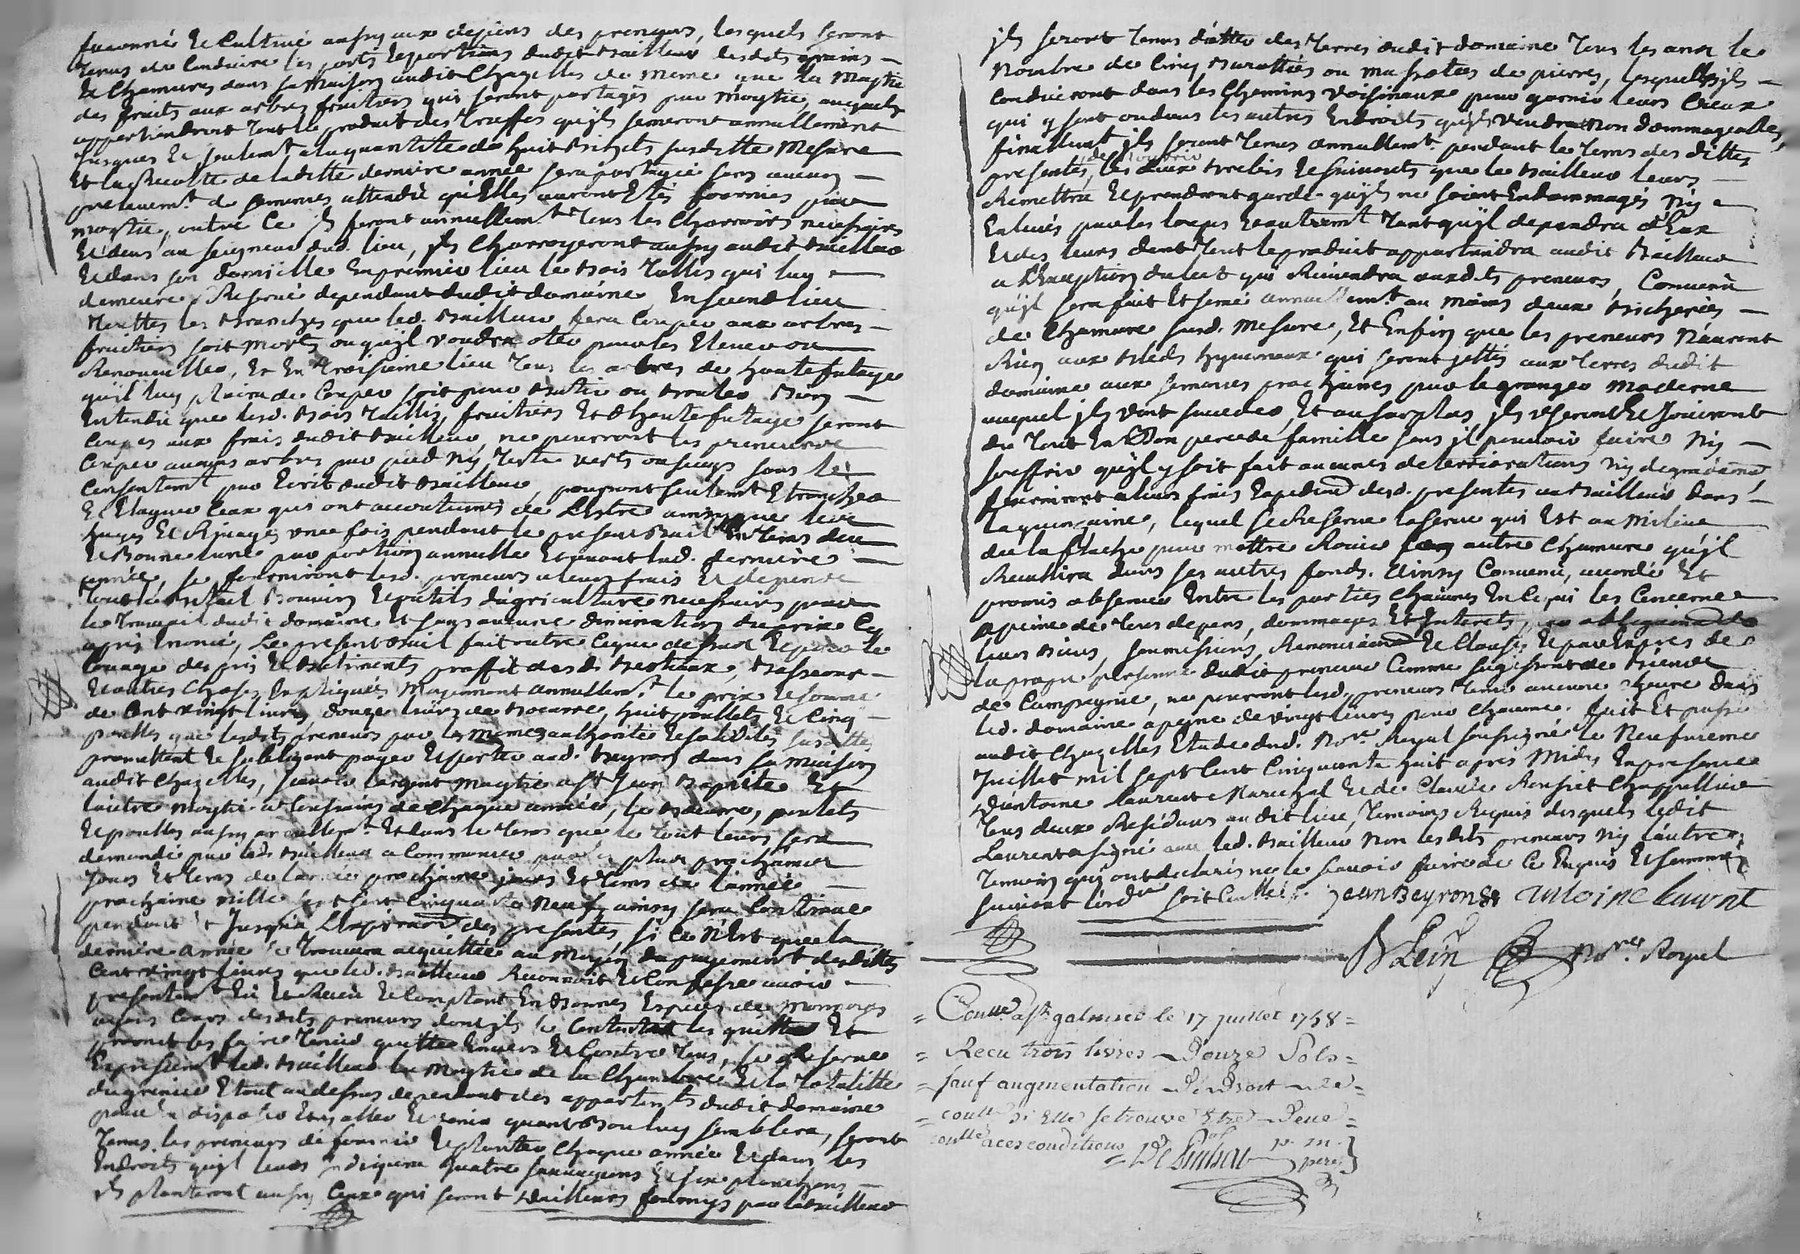 faconné et Cultivé aussy aux depens des preneurs, lesquels seront
tenus de Conduire les parts et portions dudit bailleur desdits grains
et Chanvres dans sa maison audit Chazelles de meme que la moytié
des fruits aux arbres fruitiers qui seront partagés par moytié, auquels
appartiendront tout le produit des truffes qu'ils semeront annuellement
jusques et seulemt a la quantité de huit bichets susditte mesure
et la Recolte de laditte derniere année sera partagée sans aucun
prelevemt de semences attendu qu'elles auront Etés fournies par
moytié, outre Ce ils feront annuellemt tous les Charrois necessaires
et deus au seigneur dud. lieu, ils Charroyeront aussy audit bailleur
et dans son domicille En premier lieu le bois taillis qui luy
demeure Reservé dependant dudit domaine, En second lieu
touttes les branches que led. bailleur fera Couper aux arbres
fruitiers soit morts ou qu'il voudra oter pour les Elever ou
Renouveller, Et En troisieme lieu tous les arbres de haute futaye
qu'il luy plaira de Couper soit pour batir ou bruler. Bien
Entendu que lesd. bois taillis, fruitiers Et d'haute futaye seront
Coupés aux frais dudit bailleur, ne pourront les preneurs
Couper aucuns arbres par pied ny teste verts ou secqs sans le
Consentemt par Ecrit dudit bailleur, pourront seulemt Ebrancher
Et Elaguer Ceux qui ont accoutumés de L'estre ainsy que les
hayes Et Rivages une fois pendant le present bail En tems deu
et bonne lune par portion annuelle Et quant lad. derniere
année, se fourniront lesd. preneurs a leurs frais et depense
tous bouviers et outils d'agriculture necessaires pour
le travail dudit domaine Et sans aucune diminution du prix Cy
apres Enoncé, Le present bail fait outre Ce que dessus Et pour le
louage des prés et batiments, proffit desd. bestiaux, basseours
et autres Choses Expliquées moyennant annuellemt le prix et somme
de Cent vingt livres, douze livres de beurre, huit poullets, et Cinq
poulles que lesdits preneurs par les memes authorités et solidités susdittes
promettent et s'obligent payer et porter aud. beyron dans sa maison
audit Chazelles, sçavoir l'argent moytié a St Jean baptiste Et
l'autre moytié a toussaint de Chaque année, le beurre, poulets
et poulles aussy annuellemt Et dans le tems que le tout leurs sera
demandé par led. bailleur a Commencer par la plus prochaine
jours Et tems de l'année prochaine jours Et tems de l'année
prochaine mille sept Cent Cinquante Neuf ainsy sera Continué
pendant Et jusqu'a L'Expiraon des presentes, si Ce N'est que la
derniere année se trouvera acquittée au moyen du payement desdittes
Cent vingt livres que led. bailleur Reconnoit et Confesse avoir
presentemt Eu et Reçu et Comptant En bonnes Especes de monnoyes
ayans Cours desdits preneurs dont ils se Contente les quitte Et
promet les faire tenir quittes Envers et Contre tous, se Reserve
Expressemt led. bailleur la moytié de la Chambre et la totalité
du grenier Etant au dessus dependant des appartemts dudit domaine
pour En disposer Et y aller et venir quant bon luy semblera, seront
tenus les preneurs de fournir et planter Chaque année et dans les
Endroits qu'il leurs indiquera quatre sauvageons et six planchons
ils planteront aussy Ceux qui seront d'ailleurs fournys par le bailleur
ils seront tenus d'otter des terres dudit domaine tous les ans le
Nombre de Cinq barottées ou massotées de pierres, lesquelles ils
conduiront dans les Chemins voisinaux pour garnir leurs Creux
qui y sont ou dans les autres Endroits qu'ils voudra non dommageables,
finallemt ils seront tenus annuellemt pendant le tems des dittes
presentes de nourrir les deux brebis et suivants que le bailleur leurs
Remettra et prendront garde qu'ils ne soient Endommagés ny
Enlevés par les loups et autremt tant qu'il dependra d'Eux
et des leurs dont tout le produit appartiendra audit bailleur
a l'Exception du lait qui Reviendra auxdits preneurs, Convenu
qu'il sera fait Et semé annuellemt au moins deux bicherées
de Chanvre susd. mesure, Et Enfin que les preneurs N'auront
Rien aux bleds hyvernaux qui seront jettés aux terres dudit
domaine aux semences prochaines par le granger moderne
auquel ils vont succeder, Et au surplus ils useront et jouiront
du tout En Bon pere de famille sans y pouvoir faire ny
souffrir qu'il y soit fait aucunes deteriorations ny degradaons,
fourniront a leurs frais Expedion desd. presentes au bailleur dans
la quinzaine, lequel se Reserve la serve qui Est au milieu
de la flache pour mettre Rouir son autre Chanvre qu'il
Recullira dans ses autres fonds. Ainsy Convenu, accordé Et
promis observer Entre les parties Chacunes En Ce qui les Concerne
a peine de tous depens, dommages Et Interets, obligaon de
leurs biens, soumissions, Renonciaons et Clauses et par Exprés de
la propre personne dudit preneur Comme s'agissant de bien de
de Campagne, ne pourront lesd. preneurs tenir aucune Chevre dans
led. domaine a peyne de vingt livres pour Chacune. fait Et passé
audit Chazelles Etude dud. Nore Royal soussigné le Neufvieme
juillet mil sept Cent Cinquante huit apres midy En presence
d'antoine Laurent Marechal et de Claude Chappellier
tous deux Residans audit lieu, temoins Requis desquels ledit
Laurent a signé avec led. bailleur Non lesdits preneurs ny l'autre
temoin qui ont declarés ne le sçavoir faire de Ce Enquis Et sommés
suivant l'ordce soit Controllé jean Beyron antoine laurent
Blein Nore Royal
= Conllé a St galmier le 17 juillet 1758 =
= Recu trois livres Douze Sols =
= sauf augmentation De Droit de =
= conlle Si Elle se trouve Estre Deue
conlle a ces conditions